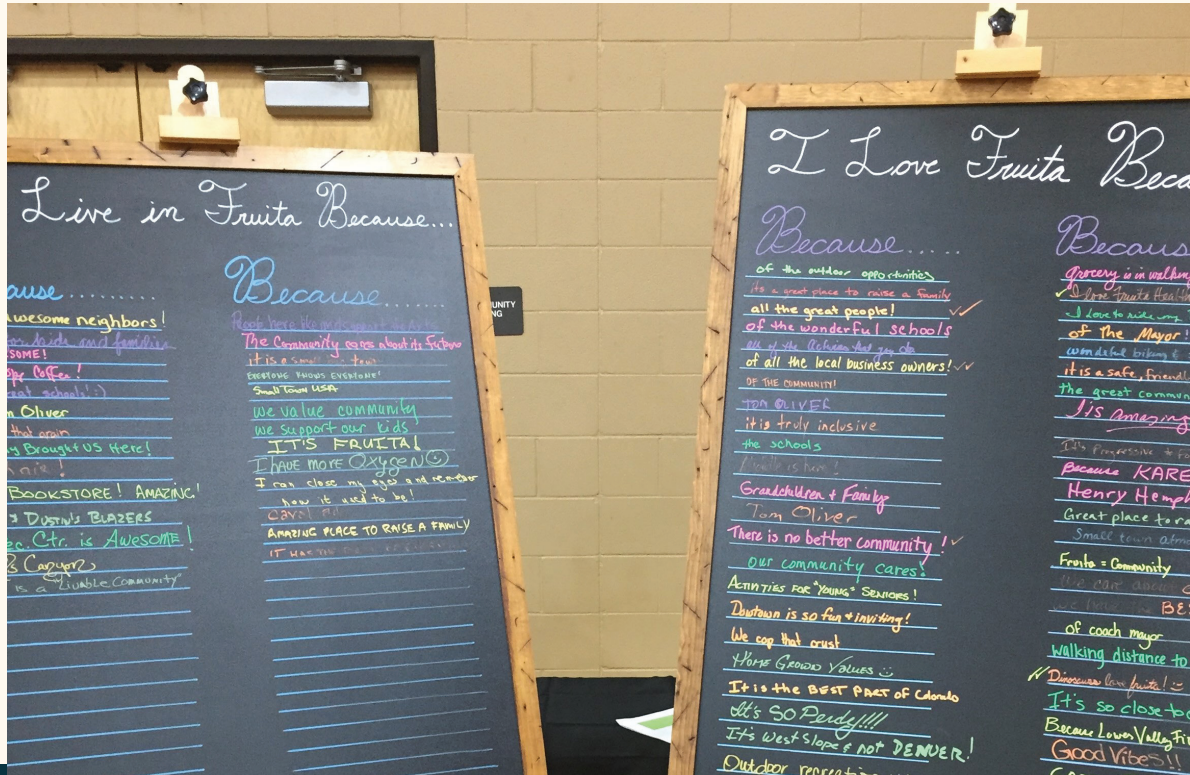 Live in Fruita Because...
ause..........
Awesome neighbors!
or kids and families
SOME!
Coffee!
reat schools! :)
m Oliver
that grain
y Brought US Here!
BOOKSTORE! AMAZING!
& DUSTIN'S BLAZERS
ec. Ctr. is AWESOME!
Canyon
is a "Livable Community"
Because.......
People here
The Community cares about its Future
it is a small town
EVERYONE KNOWS EVERYONE!
Small Town USA
we value community
we support our kids
IT'S FRUITA!
I HAVE MORE OXYGEN ☺
I can close my eyes and remember
how it used to be!
AMAZING PLACE TO RAISE A FAMILY
IT
UNITY
NG
I Love Fruita Beca
Because.....
of the outdoor opportunities
it's a great place to raise a family
all the great people!
of the wonderful schools
all of the that you do
of all the local business owners!
OF THE COMMUNITY!
TOM OLIVER
it is truly inclusive
the schools
is here!
Grandchildren & Family
Tom Oliver
There is no better community!
our community cares!
ACTIVITIES FOR "YOUNG" SENIORS!
Dowtown is so fun & inviting!
We cop that crust
HOME GROWN VALUES
It is the BEST PART OF Colorado
It's SO Perdy!!!
It's West Slope & not DENVER!
Outdoor recreation
Becaus
grocery is in walkin
I love Fruita Healt
I Love to ride my
of The Mayor!
wonderful biking &
it is a safe, friendl
the great commun
It is amazing
It's Progressive & Fo
Because KARE
Henry Hemph
Great place to ra
Small town atm
Fruita = Community
We care about
BES
of coach mayor
walking distance to
Dinosaurs love fruita!
It's so close to
Because Lower Valley Fir
Good Vibes!!